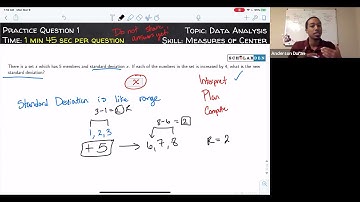 PRACTICE QUESTION 1
TIME: 1 MIN 45 SEC PER QUESTION
Do not share answer yet!
TOPIC: DATA ANALYSIS
SKILL: MEASURES OF CENTER
There is a set s which has 5 members and standard deviation x. If each of the numbers in the set is increased by 4, what is the new
standard deviation?
SCHOLARDEN
Anderson Durae
Interpret ✓
Plan
Compute
Standard Deviation is like range
3-1=2
8-6=2
1,2,3
+5
6,7,8
R=2